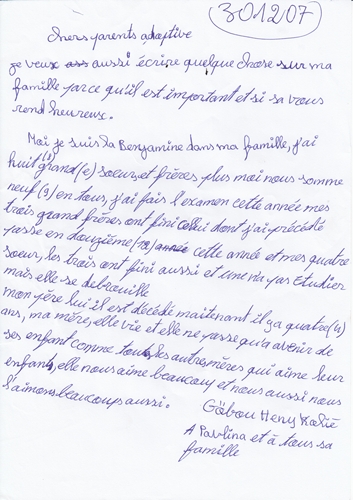 301207
chers parents adaptive
je veux aussi écrire quelque chose sur ma
famille parce qu'il est important et si sa vous
rend heureux.
Moi je suis la Benjamine dans ma famille, j'ai
huit grand(e) soeur et frères plus moi nous somme
neuf (9) en tous, j'ai fais l'examen cette année mes
trois grand frères ont fini Cellui dont j'ai précédé
passe en douzième (12) cette année et mes quatre
soeur, les trois ont fini aussi et une n'a pas Etudier
mais elle se debrouille
mon père lui il est décédé maitenant il y a quatre (4)
ans, ma mère, elle vie et elle ne passe qu'a avenir de
ses enfant comme tous les autres mères qui aime leur
enfants, elle nous aime beaucoup et nous aussi nous
l'aimons beaucoup aussi.
Gäbou Heny
A Pavlina et à tous sa
famille